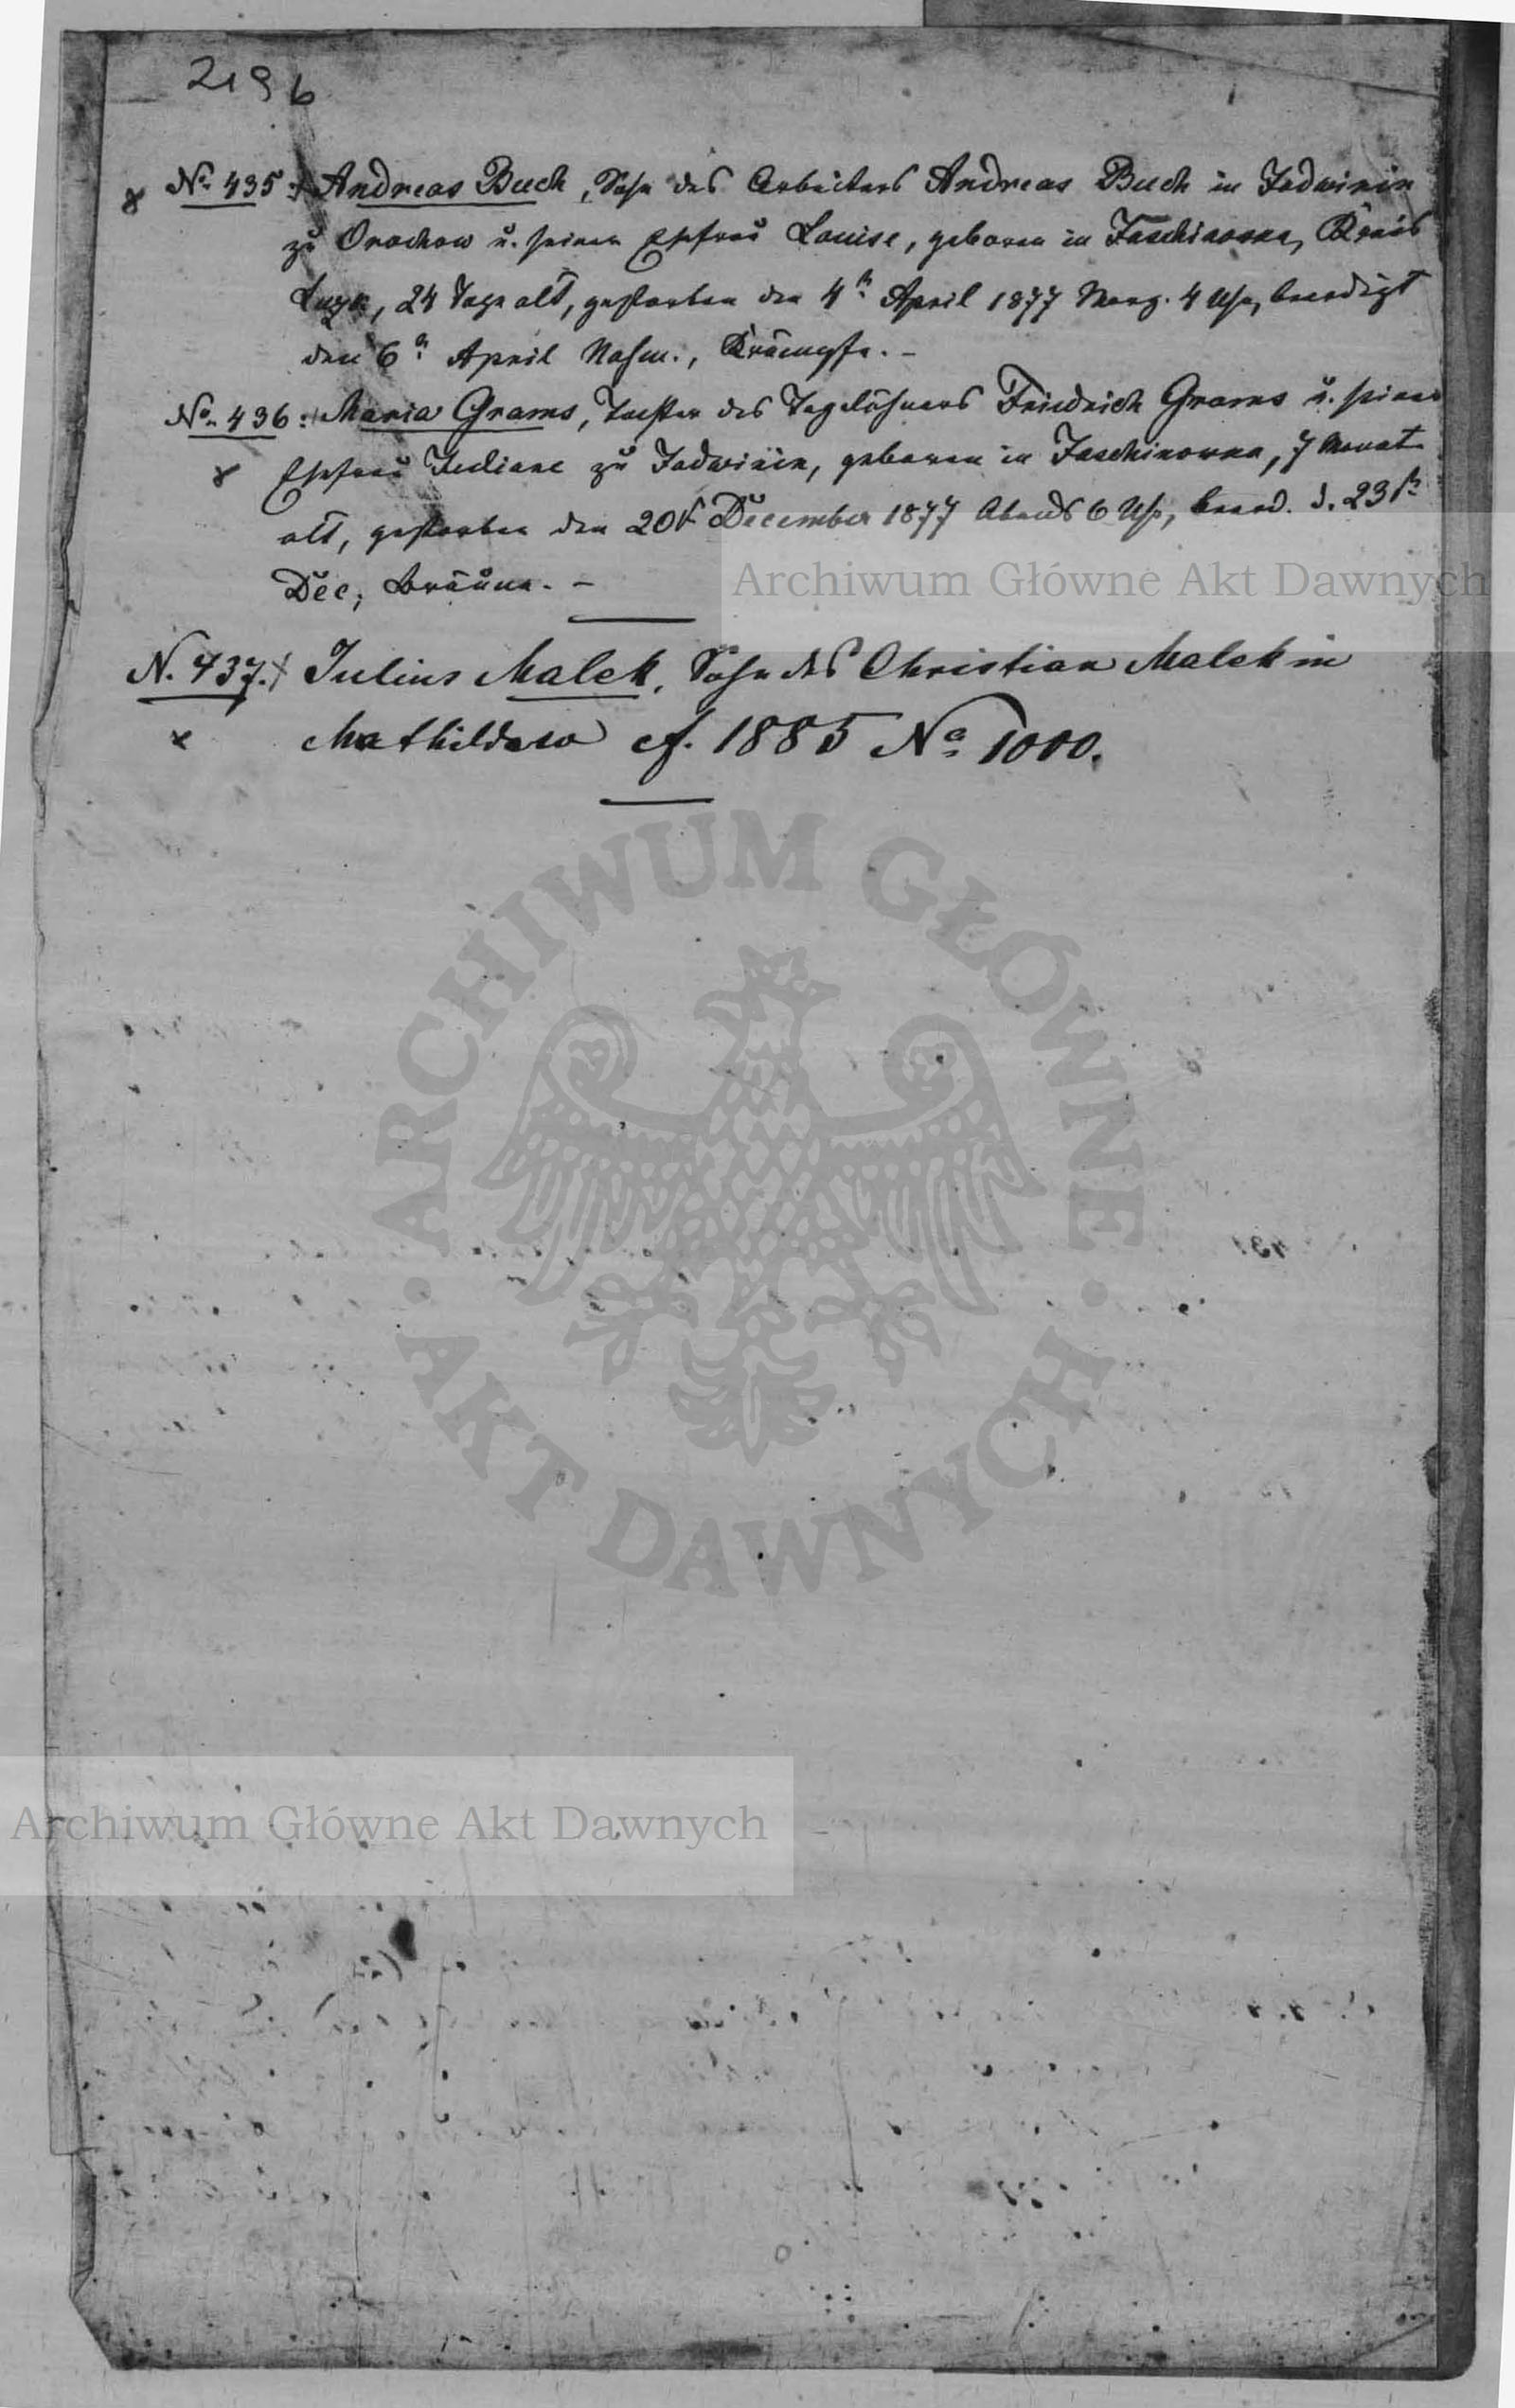 2196
No 435: Andreas Buch, Sohn des Arbeiters Andreas Buch in Jadwinin
zu Orochow u. seiner Ehefrau Louise, geboren in Jaschinowka, Kreis
Luzk, 24 Tage alt, gestorben den 4n April 1877 Morg. 4 Uhr, beerdigt
den 6n April Nahm., Krämpfe. -
No 436: Maria Grams, Tochter des Tagelöhners Friedrich Grams u. seiner
Ehefrau Juliane zu Jadwinin, geboren in Jaschinowka, 7 Monat
alt, gestorben den 20t December 1877 Abends 6 Uhr, beerd. d. 23t
Dec; Bräune. -
N. 437. Julius Malek, Sohn des Christian Malek in
Mathildow cf. 1885 No 1000.
Archiwum Główne Akt Dawnych
ARCHIWUM GŁÓWNE · AKT DAWNYCH ·
Archiwum Główne Akt Dawnych